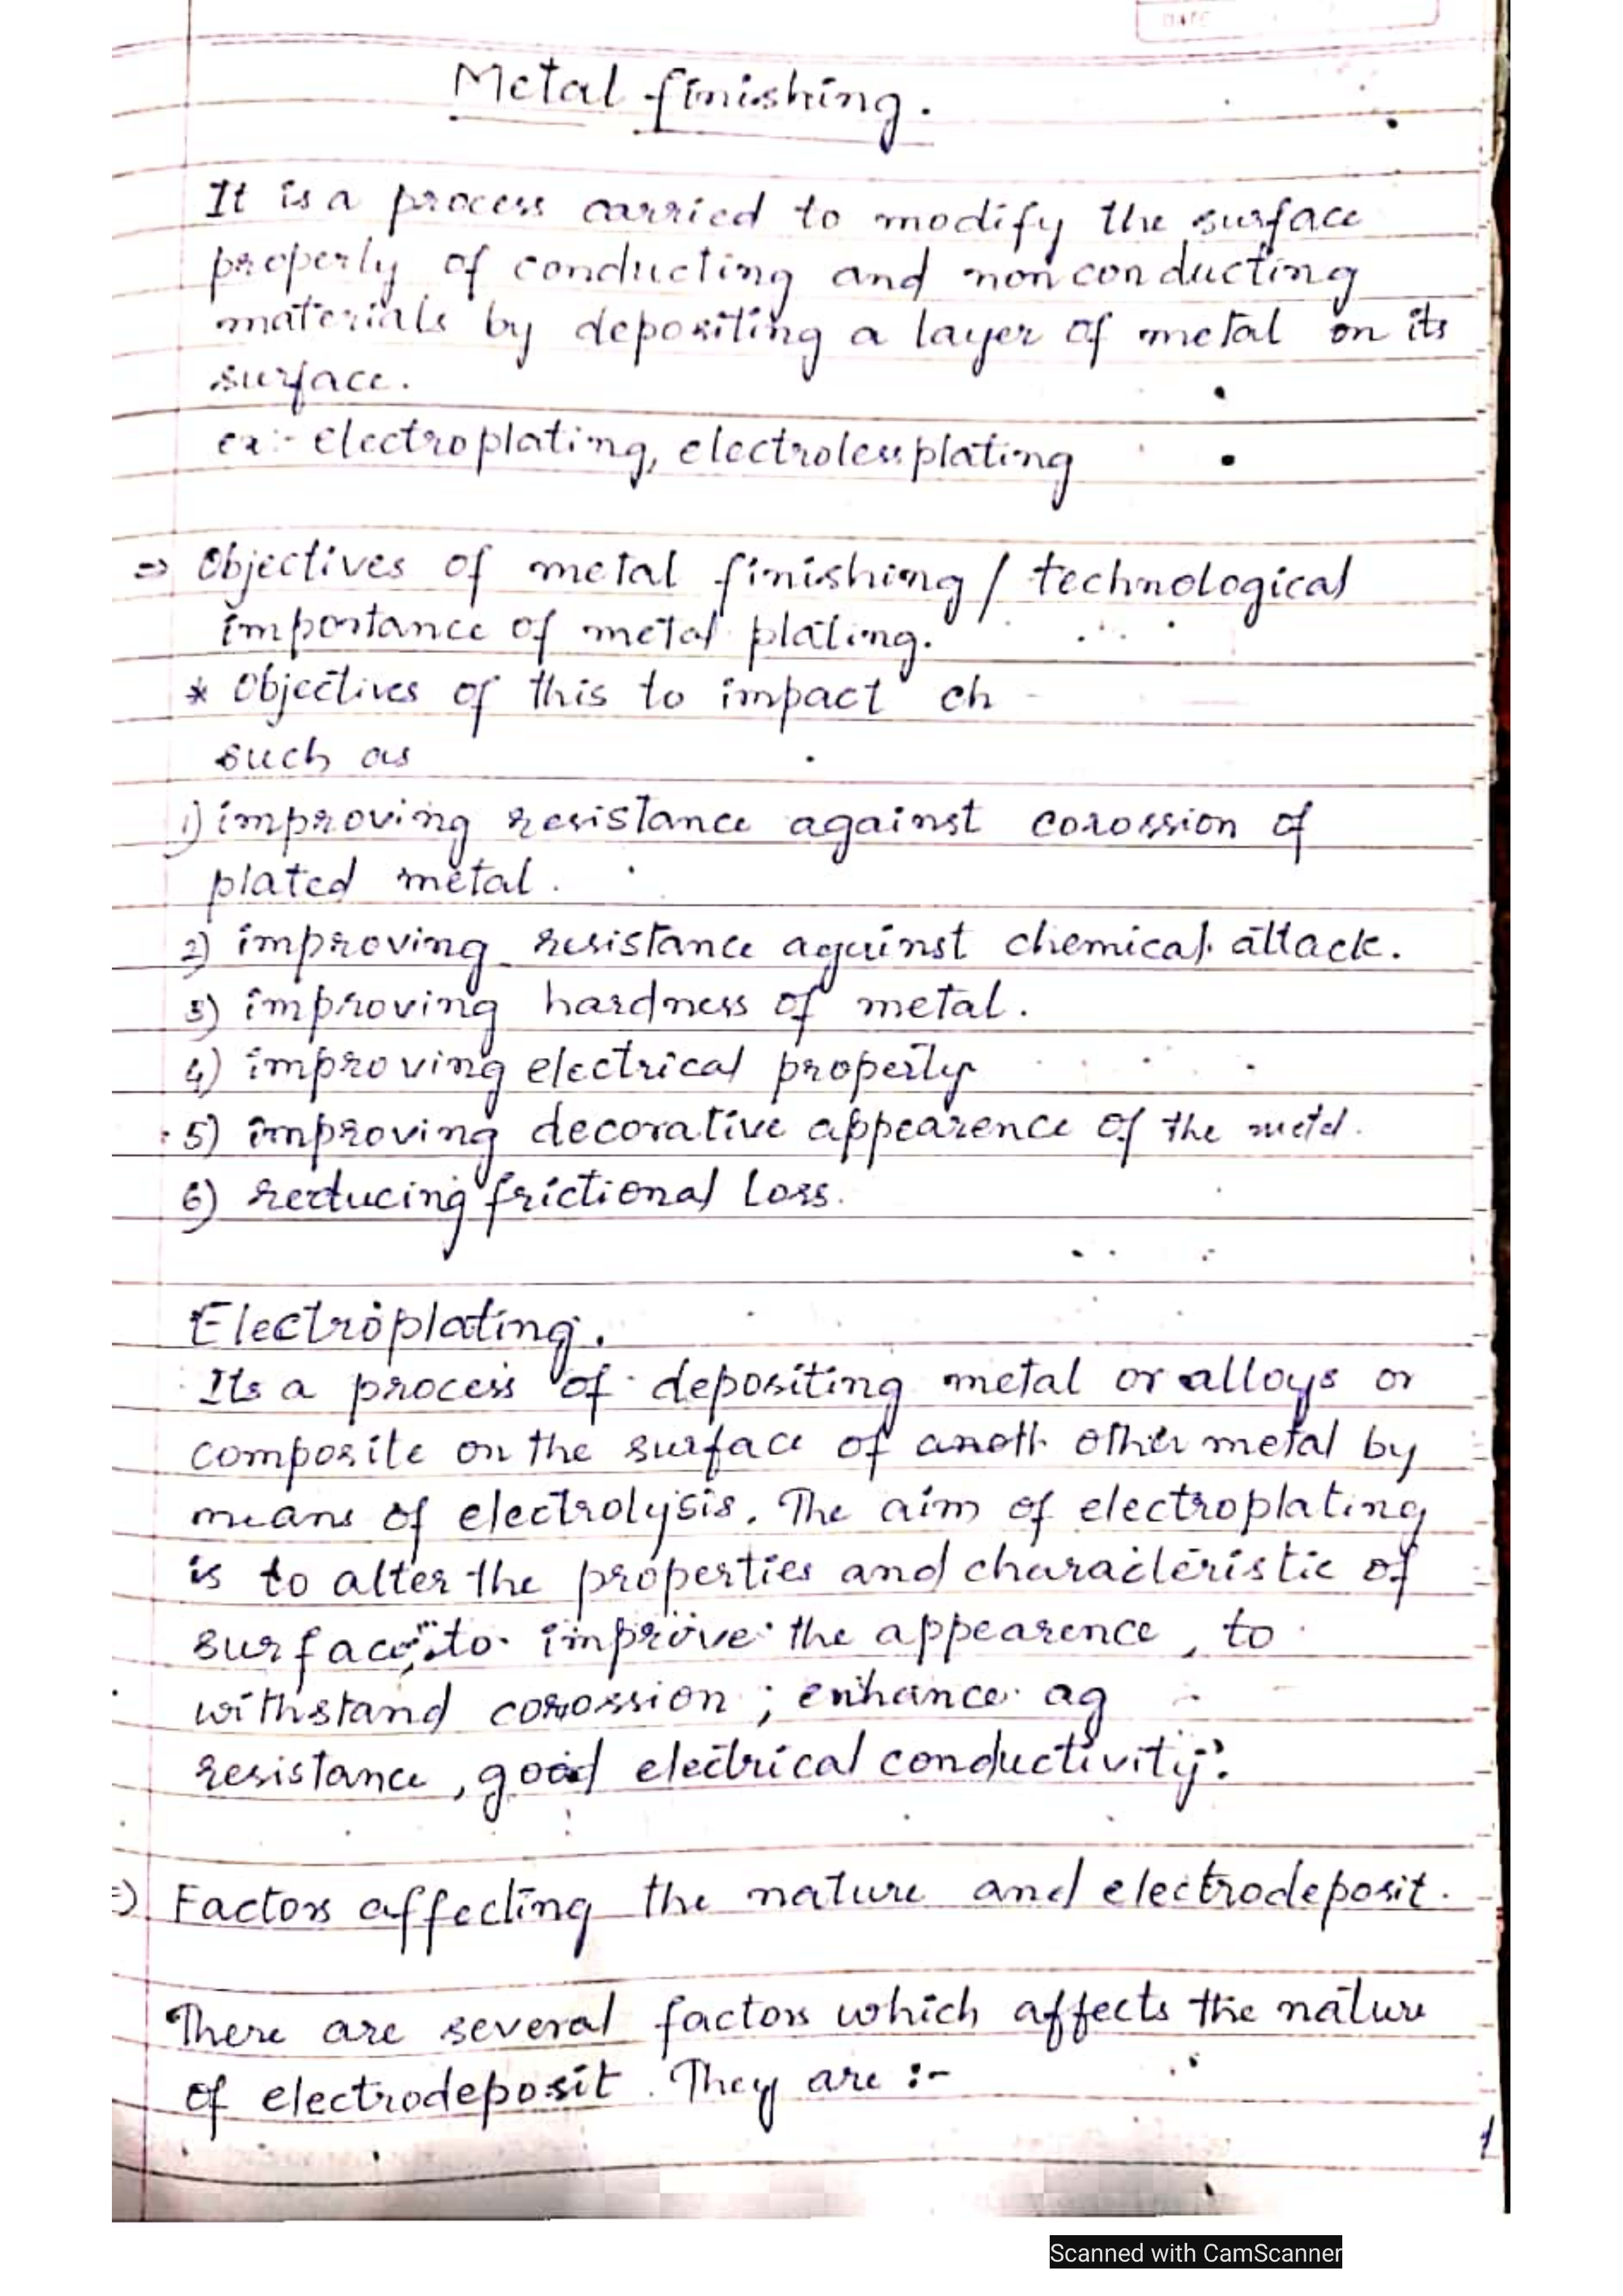 DATE
Metal finishing.
It is a process carried to modify the surface
property of conducting and non conducting
materials by depositing a layer of metal on its
surface.
ex:- electroplating, electrolessplating
=> Objectives of metal finishing / technological
importance of metal plating.
* Objectives of this to impact ch
such as
1) improving resistance against corossion of
plated metal.
2) improving resistance against chemical attack.
3) improving hardness of metal.
4) improving electrical property
5) improving decorative appearence of the metal.
6) reducing frictional loss.
Electroplating.
Its a process of depositing metal or alloys or
composite on the surface of anoth other metal by
means of electrolysis. The aim of electroplating
is to alter the properties and characteristic of
surface, to improve the appearence, to
withstand corossion ; enhance ag
resistance, good electrical conductivity.
=) Factors affecting the nature and electrodeposit.
There are several factors which affects the nature
of electrodeposit. They are :-
1
Scanned with CamScanner